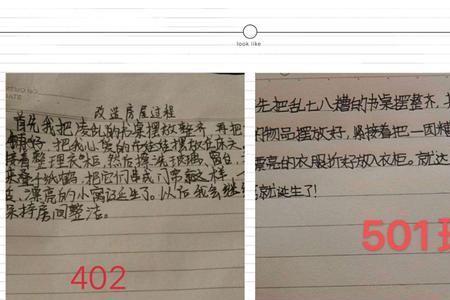 look like
改造房屋过程
首先我把凌乱的书桌摆放整齐,再把
把我心爱的
接着整理衣柜,然后擦洗玻璃、窗台,
千纸鹤,把它们串成门帘
漂亮的小窝诞生了。以后我会继续
保持房间整洁。
402
先把乱七八糟的书桌摆整齐,
用物品摆放好,紧接着把一团糟
漂亮的衣服折好放入衣柜。就这
就诞生了!
501班